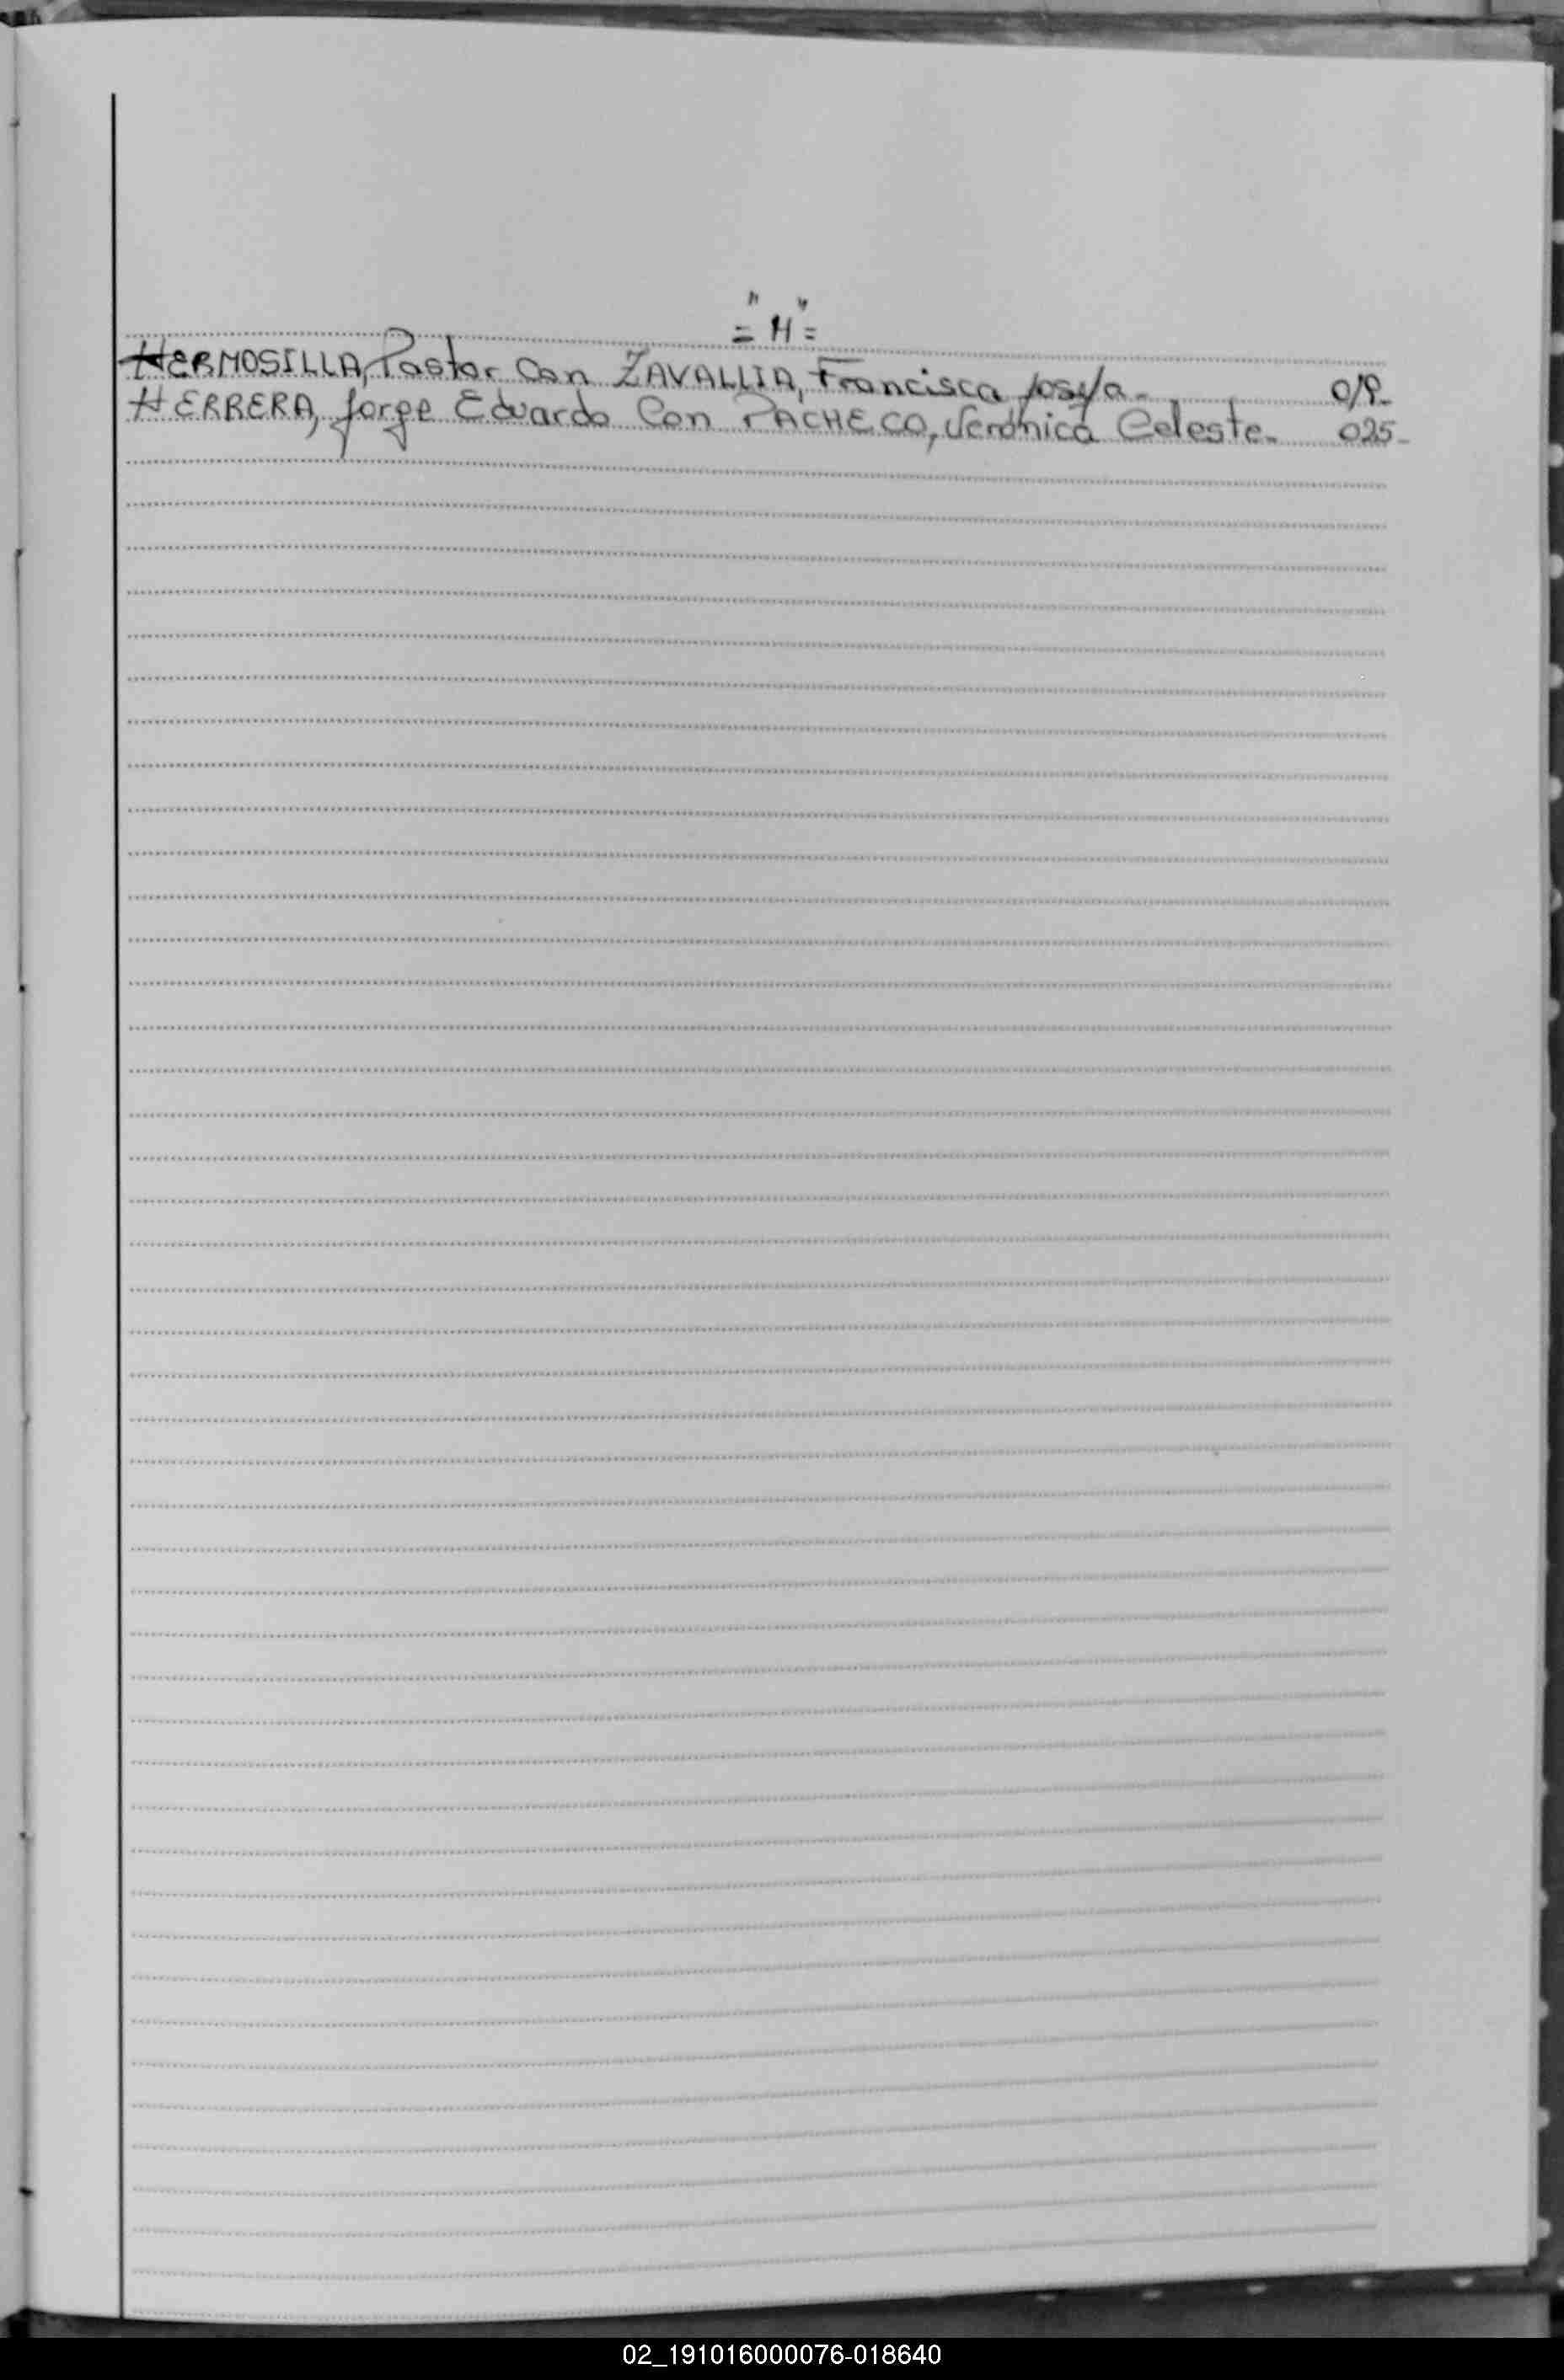 ="H"=
HERMOSILLA, Pastor Con ZAVALLIA, Francisca
HERRERA, Jorge Eduardo Con PACHECO, Verónica Celeste. 025-
02_191016000076-018640